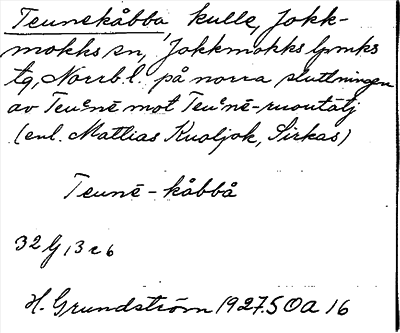 Teunekåbba, kulle, Jokk-
mokks sn, Jokkmokks lpmks
tg, Norrb.l. på norra sluttningen
av Teuᵋnē mot Teuᵋnē-ruoutātj
(enl. Mattias Kuoljok, Sirkas)
Teunē-kåbbå
32 G 13 c 6
H. Grundström 1927. S OA 16